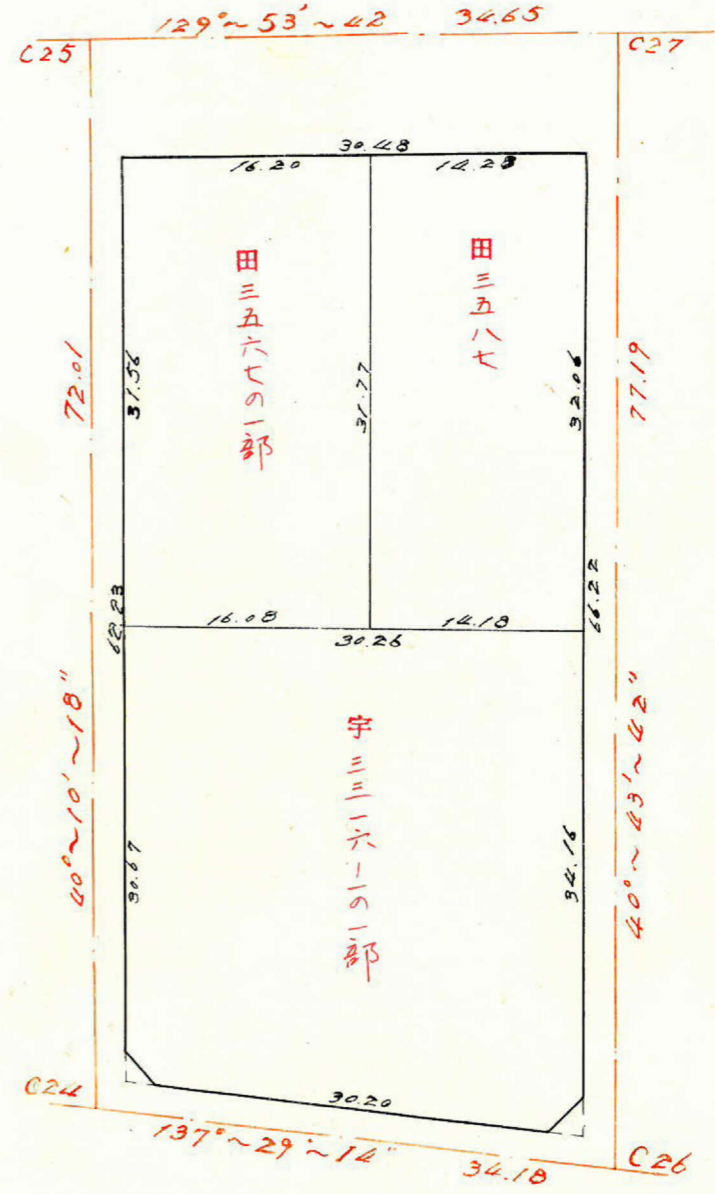 129°~53'~42 34.65
C25
C27
30.48
16.20
14.28
田三五六七の一部
田三五八七
72.01
31.56
31.77
32.06
77.19
62.23
66.22
16.08
14.18
30.26
40°~10'~18"
40°~43'~42"
30.67
34.16
C24
30.20
137°~29'~14"
34.18
C26